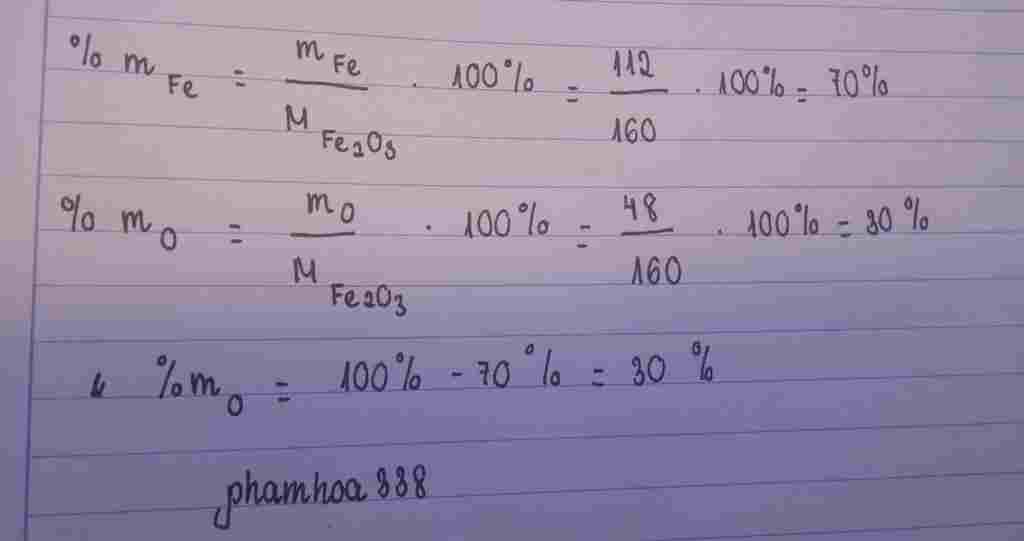 % m Fe = m Fe / M Fe2O3 . 100% = 112 / 160 . 100% = 70%
% m O = m O / M Fe2O3 . 100% = 48 / 160 . 100% = 30%
% m O = 100% - 70% = 30%
phamhoa338